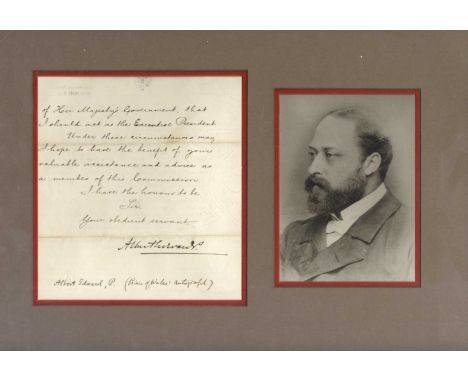 of Her Majesty's Government, that
I should act as the Executive President.
Under these circumstances may
I hope to have the benefit of your
valuable assistance and advice as
a member of this Commission
I have the honour to be
Sir
Your obedient servant
Albert Edward P
Albert Edward, P. (Prince of Wales' Autograph)